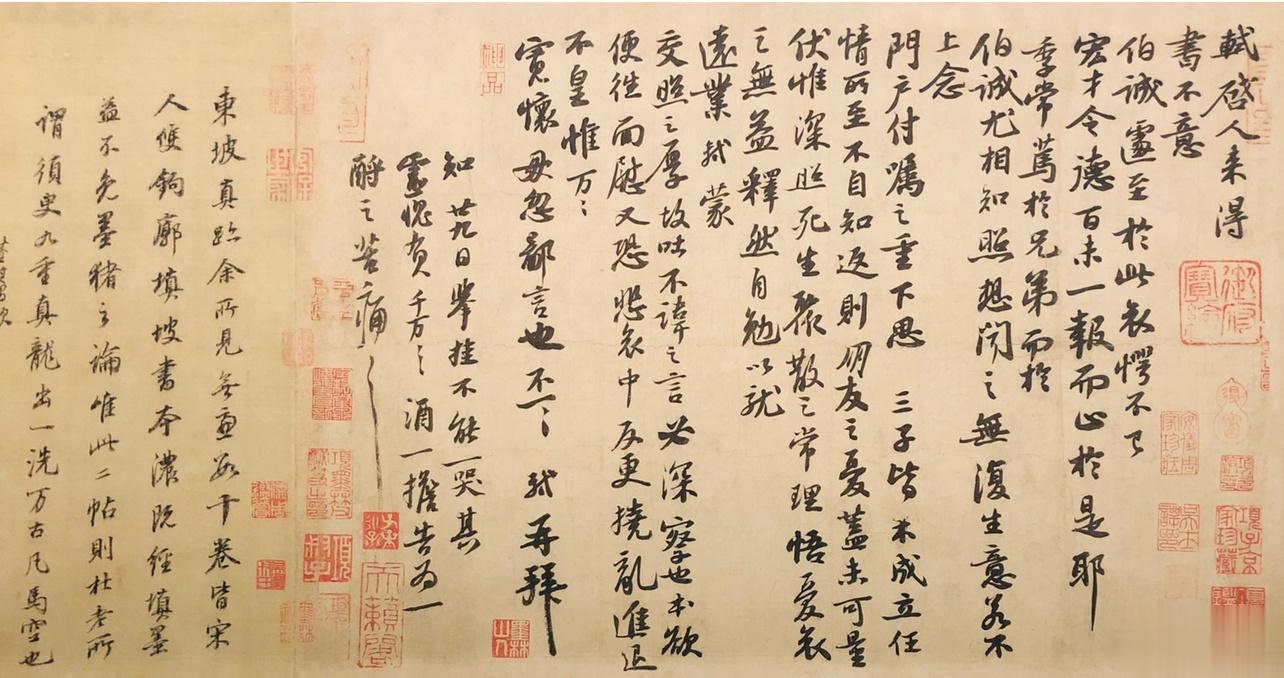 軾啓人来得
書不意
伯誠遽至於此哀愕不已
宏才令德百未一報而止於是耶
季常篤於兄弟而於
伯誠尤相知照想聞之無復生意若不
上念
門户付囑之重下思三子皆未成立任
情所至不自知返則朋友之憂蓋未可量
伏惟深照死生聚散之常理悟憂哀
之無益釋然自勉以就
遠業軾蒙
交照之厚故吐不諱之言必深察也本欲
便往面慰又恐悲哀中反更撓亂進退
不皇惟万〻
寬懷毋忽鄙言也不一〻軾再拜
知廿九日舉挂不能一哭其
靈愧負千万〻酒一擔告為一
酹之苦痛〻
東坡真跡余所見無慮數十卷皆宋
人雙鉤廓填坡書本濃既經填墨
益不免墨豬之論唯此二帖則杜老所
謂須臾九重真龍出一洗万古凡馬空也
御府寶繪
安儀周家珍藏
項子京家珍藏
神品
墨林山人
天籟閣